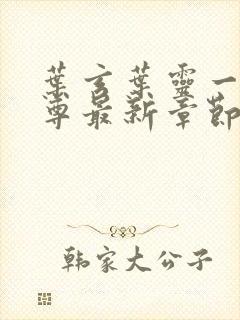 葉玄葉靈一
尊最新章節
韩家大公子